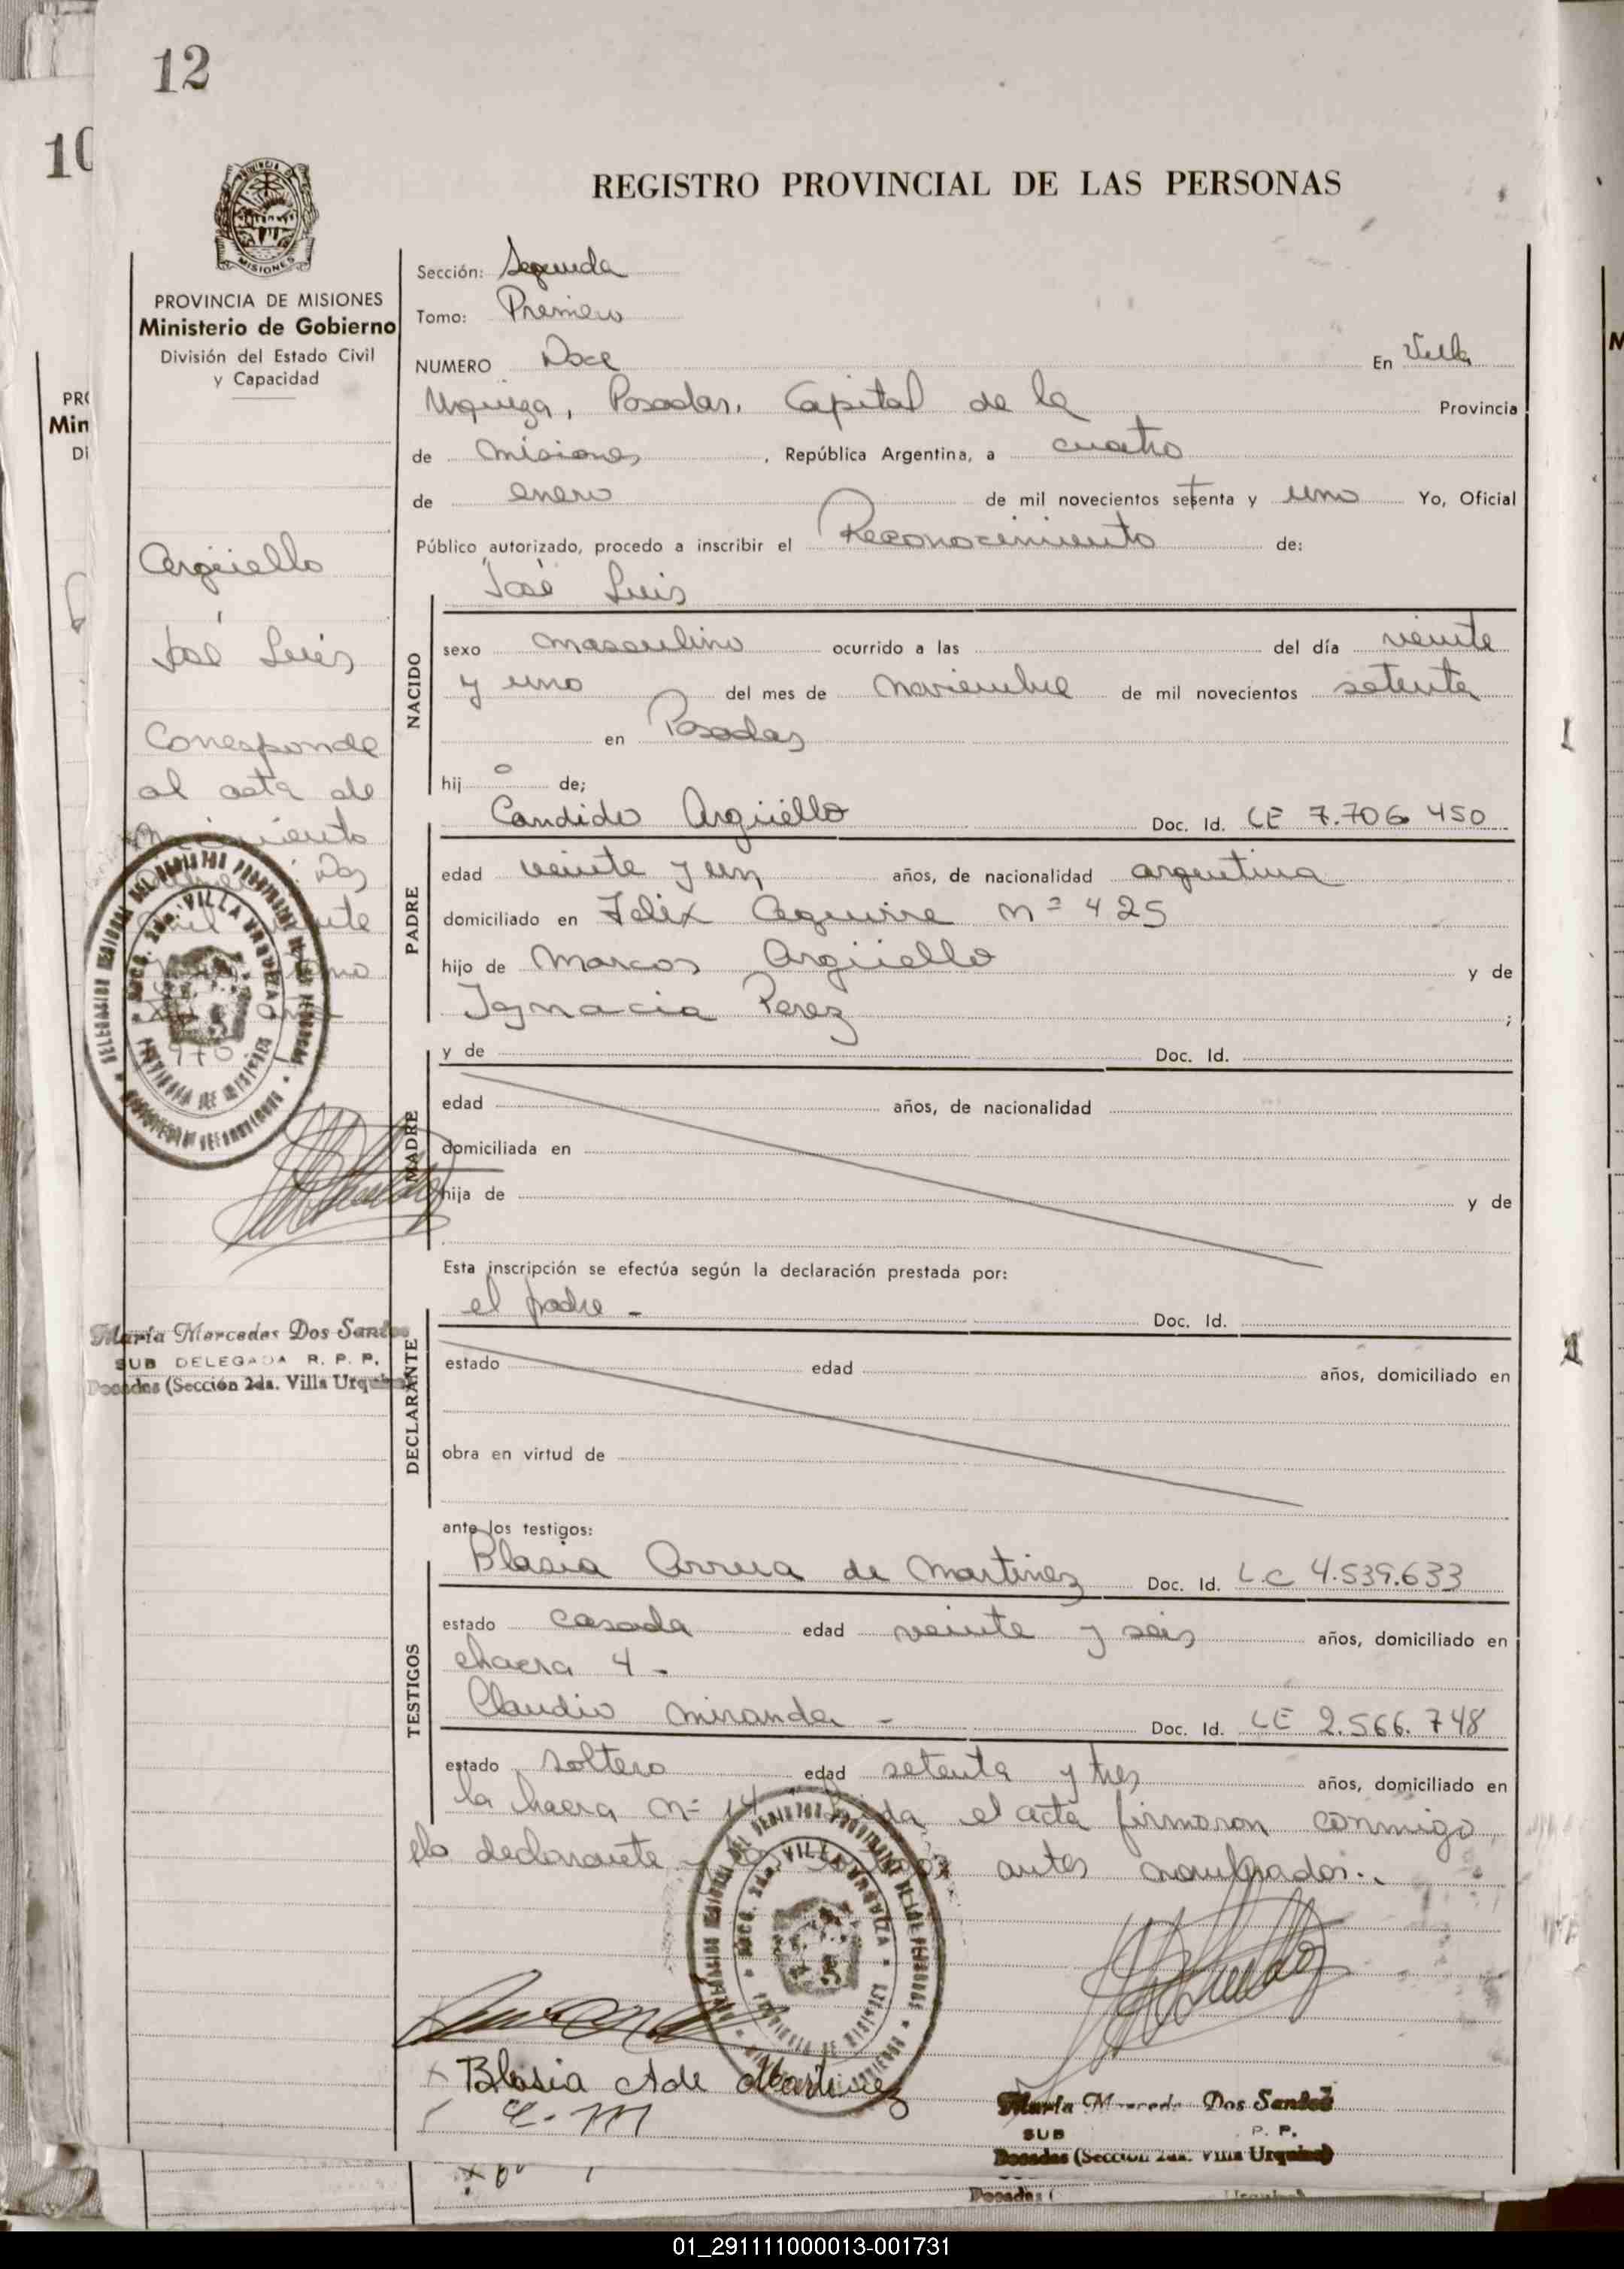 12
10
REGISTRO PROVINCIAL DE LAS PERSONAS
MISIONES
PROVINCIA DE MISIONES
Ministerio de Gobierno
División del Estado Civil
y Capacidad
Argüello
José Luis
Corresponde
al acta de
María Mercedes Dos Santos
SUB DELEGADA R. P. P.
Posadas (Sección 2da. Villa Urquiza)
Sección: Segunda
Tomo: Primero
NUMERO Doce En Villa
Urquiza, Posadas, Capital de la Provincia
de Misiones, República Argentina, a cuatro
de enero de mil novecientos setenta y uno Yo, Oficial
Público autorizado, procedo a inscribir el Reconocimiento de:
José Luis
NACIDO
sexo masculino ocurrido a las del día veinte
y uno del mes de noviembre de mil novecientos setenta
en Posadas
hijo de;
Candido Argüello Doc. Id. LE 7.706 450
PADRE
edad veinte y un años, de nacionalidad argentina
domiciliado en Felix Aguirre nº 425
hijo de Marcos Argüello y de
Ignacia Perez ;
y de Doc. Id.
MADRE
edad años, de nacionalidad
domiciliada en
hija de y de
Esta inscripción se efectúa según la declaración prestada por:
el padre - Doc. Id.
DECLARANTE
estado edad años, domiciliado en
obra en virtud de
ante los testigos:
Blasia Arrua de Martinez Doc. Id. L.C 4.539.633
TESTIGOS
estado casada edad veinte y seis años, domiciliado en
chacra 4 -
Claudio Miranda - Doc. Id. LE 2.566.748
estado soltero edad setenta y tres años, domiciliado en
la chacra nº 14 el acta firmaron conmigo
declarante y antes nombrados.
Blasia A de Martinez
María Dos Santos
SUB P. P.
Posadas (Sección 2da. Villa Urquiza)
Posadas (
01_291111000013-001731